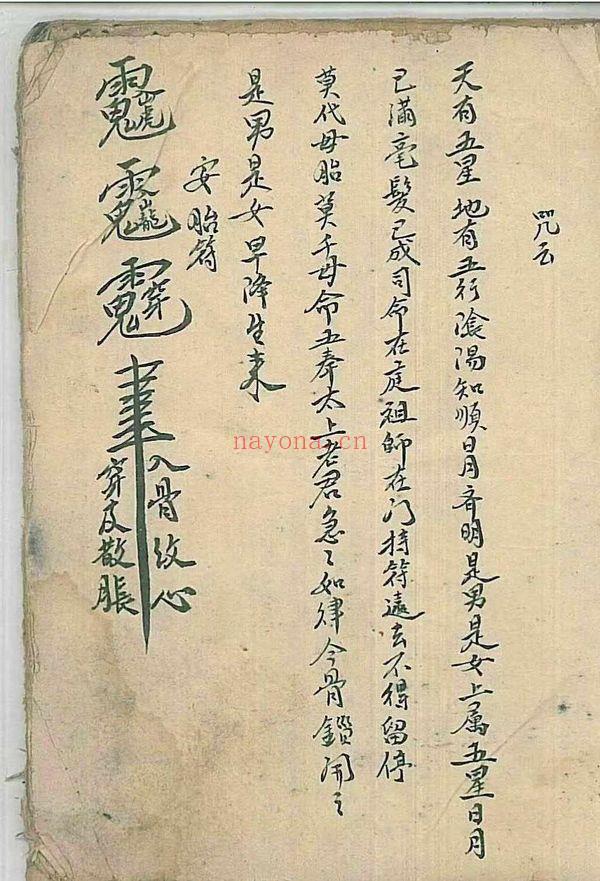 咒云
天有五星地有五行陰陽知順日月斉明是男是女上属五星日月
已滿毫髮已成司命在庭祖師在门持符遠去不得留停
莫代母胎莫千母命五奉太上老君急〻如律令骨鎖闭之
是男是女早降生来
安胎符
入骨
心
穿皮散脹
nayona.cn